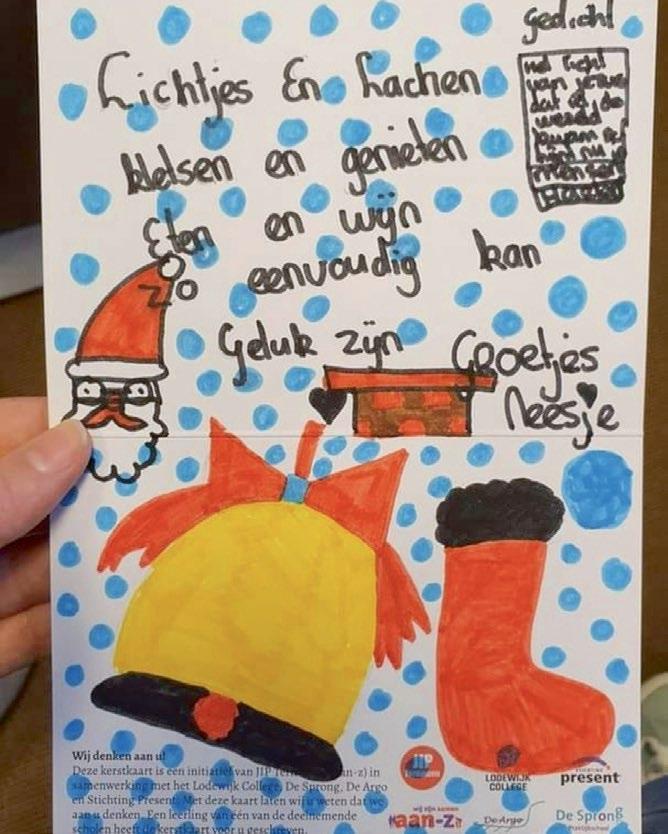 gedicht
Lichtjes En Lachen
kletsen en genieten
Eten en wijn
eenvoudig kan
Geluk zijn
Groetjes
Neesje
het licht
van
dat is de
wereld
mensen
Wij denken aan u!
Deze kerstkaart is een initiatief van JIP (aan-z) in
samenwerking met het Lodewijk College, De Sprong, De Argo
en Stichting Present. Met deze kaart laten wij u weten dat we
aan u denken. Een leerling van één van de deelnemende
scholen heeft de kerstkaart voor u geschreven.
JIP
LODEWIJK
COLLEGE
STICHTING
present
wij zijn samen
aan-z
De Argo
De Sprong
praktijkschool